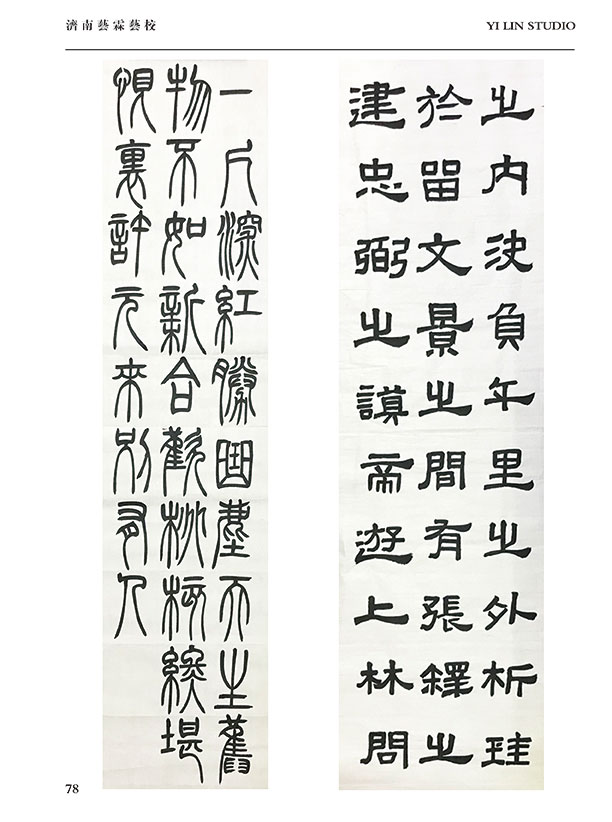 濟南藝霖藝校
YI LIN STUDIO
之內決負千里之外析珪
於留文景之間有張釋之
建忠弼之謨帝遊上林問
一尺深紅勝曲塵天生舊
物不如新合歡桃核終堪
恨裏許元來別有人
78